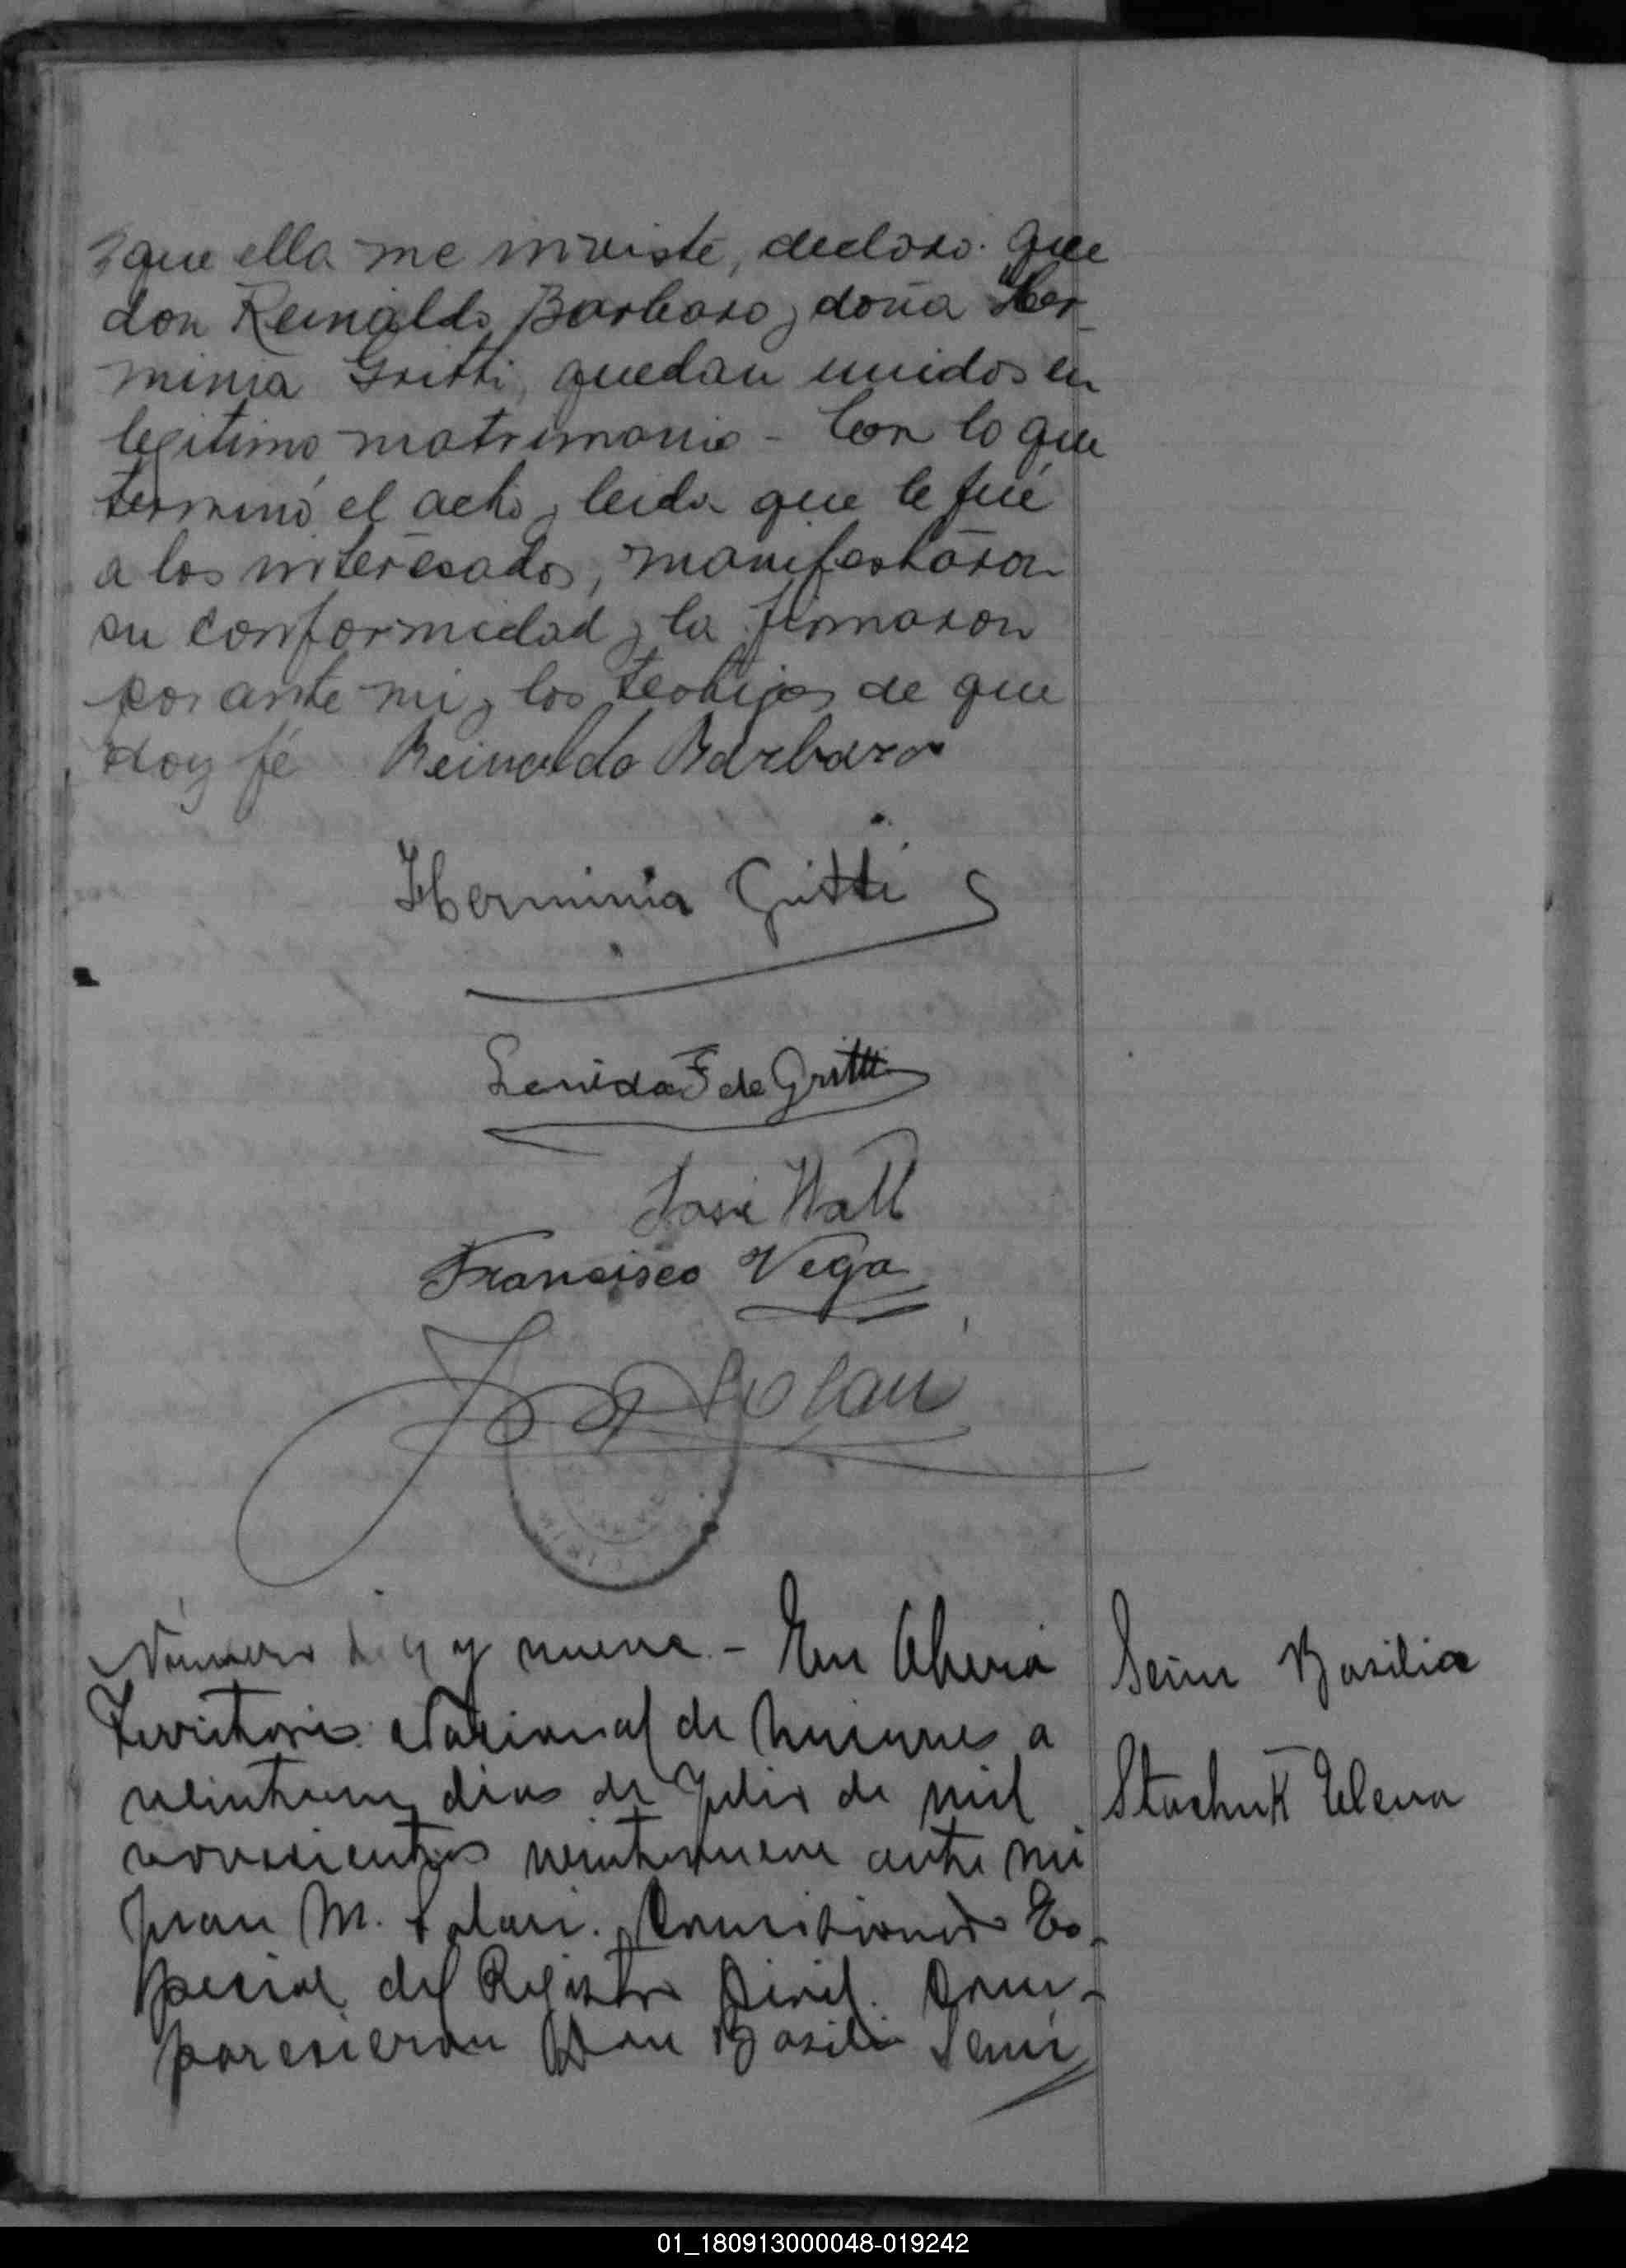 que ella me inviste, declaro. Que
don Reinaldo Barbaro y doña Her-
minia Gritti, quedan unidos en
legitimo matrimonio - Con lo que
terminó el acto y leida que le fué
a los interesados, manifestáron
su conformidad y la firmaron
por ante mi y los testigos de que
doy fé Reinaldo Barbaro
Herminia Gritti
de Gritti
José Wall
Francisco Vega
Número diez y nueve. - En Oberá
Seim Basilio
Territorio Nacional de Misiones a
dias de Julio de mil
Stachuk Elena
novecientos veintinueve ante mi
Juan M. Solari. Comisionado Es-
pecial del Registro Civil. Com-
parecieron Don Basilio Seim
01_180913000048-019242